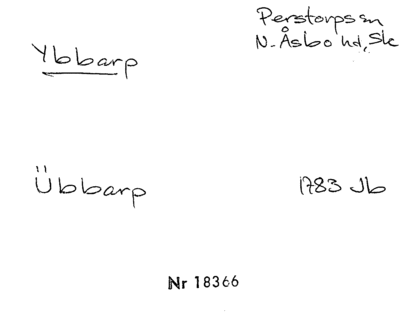 Ybbarp
Perstorps sn
N. Åsbo hd, Sk
Übbarp
1783 Jb
Nr 18366